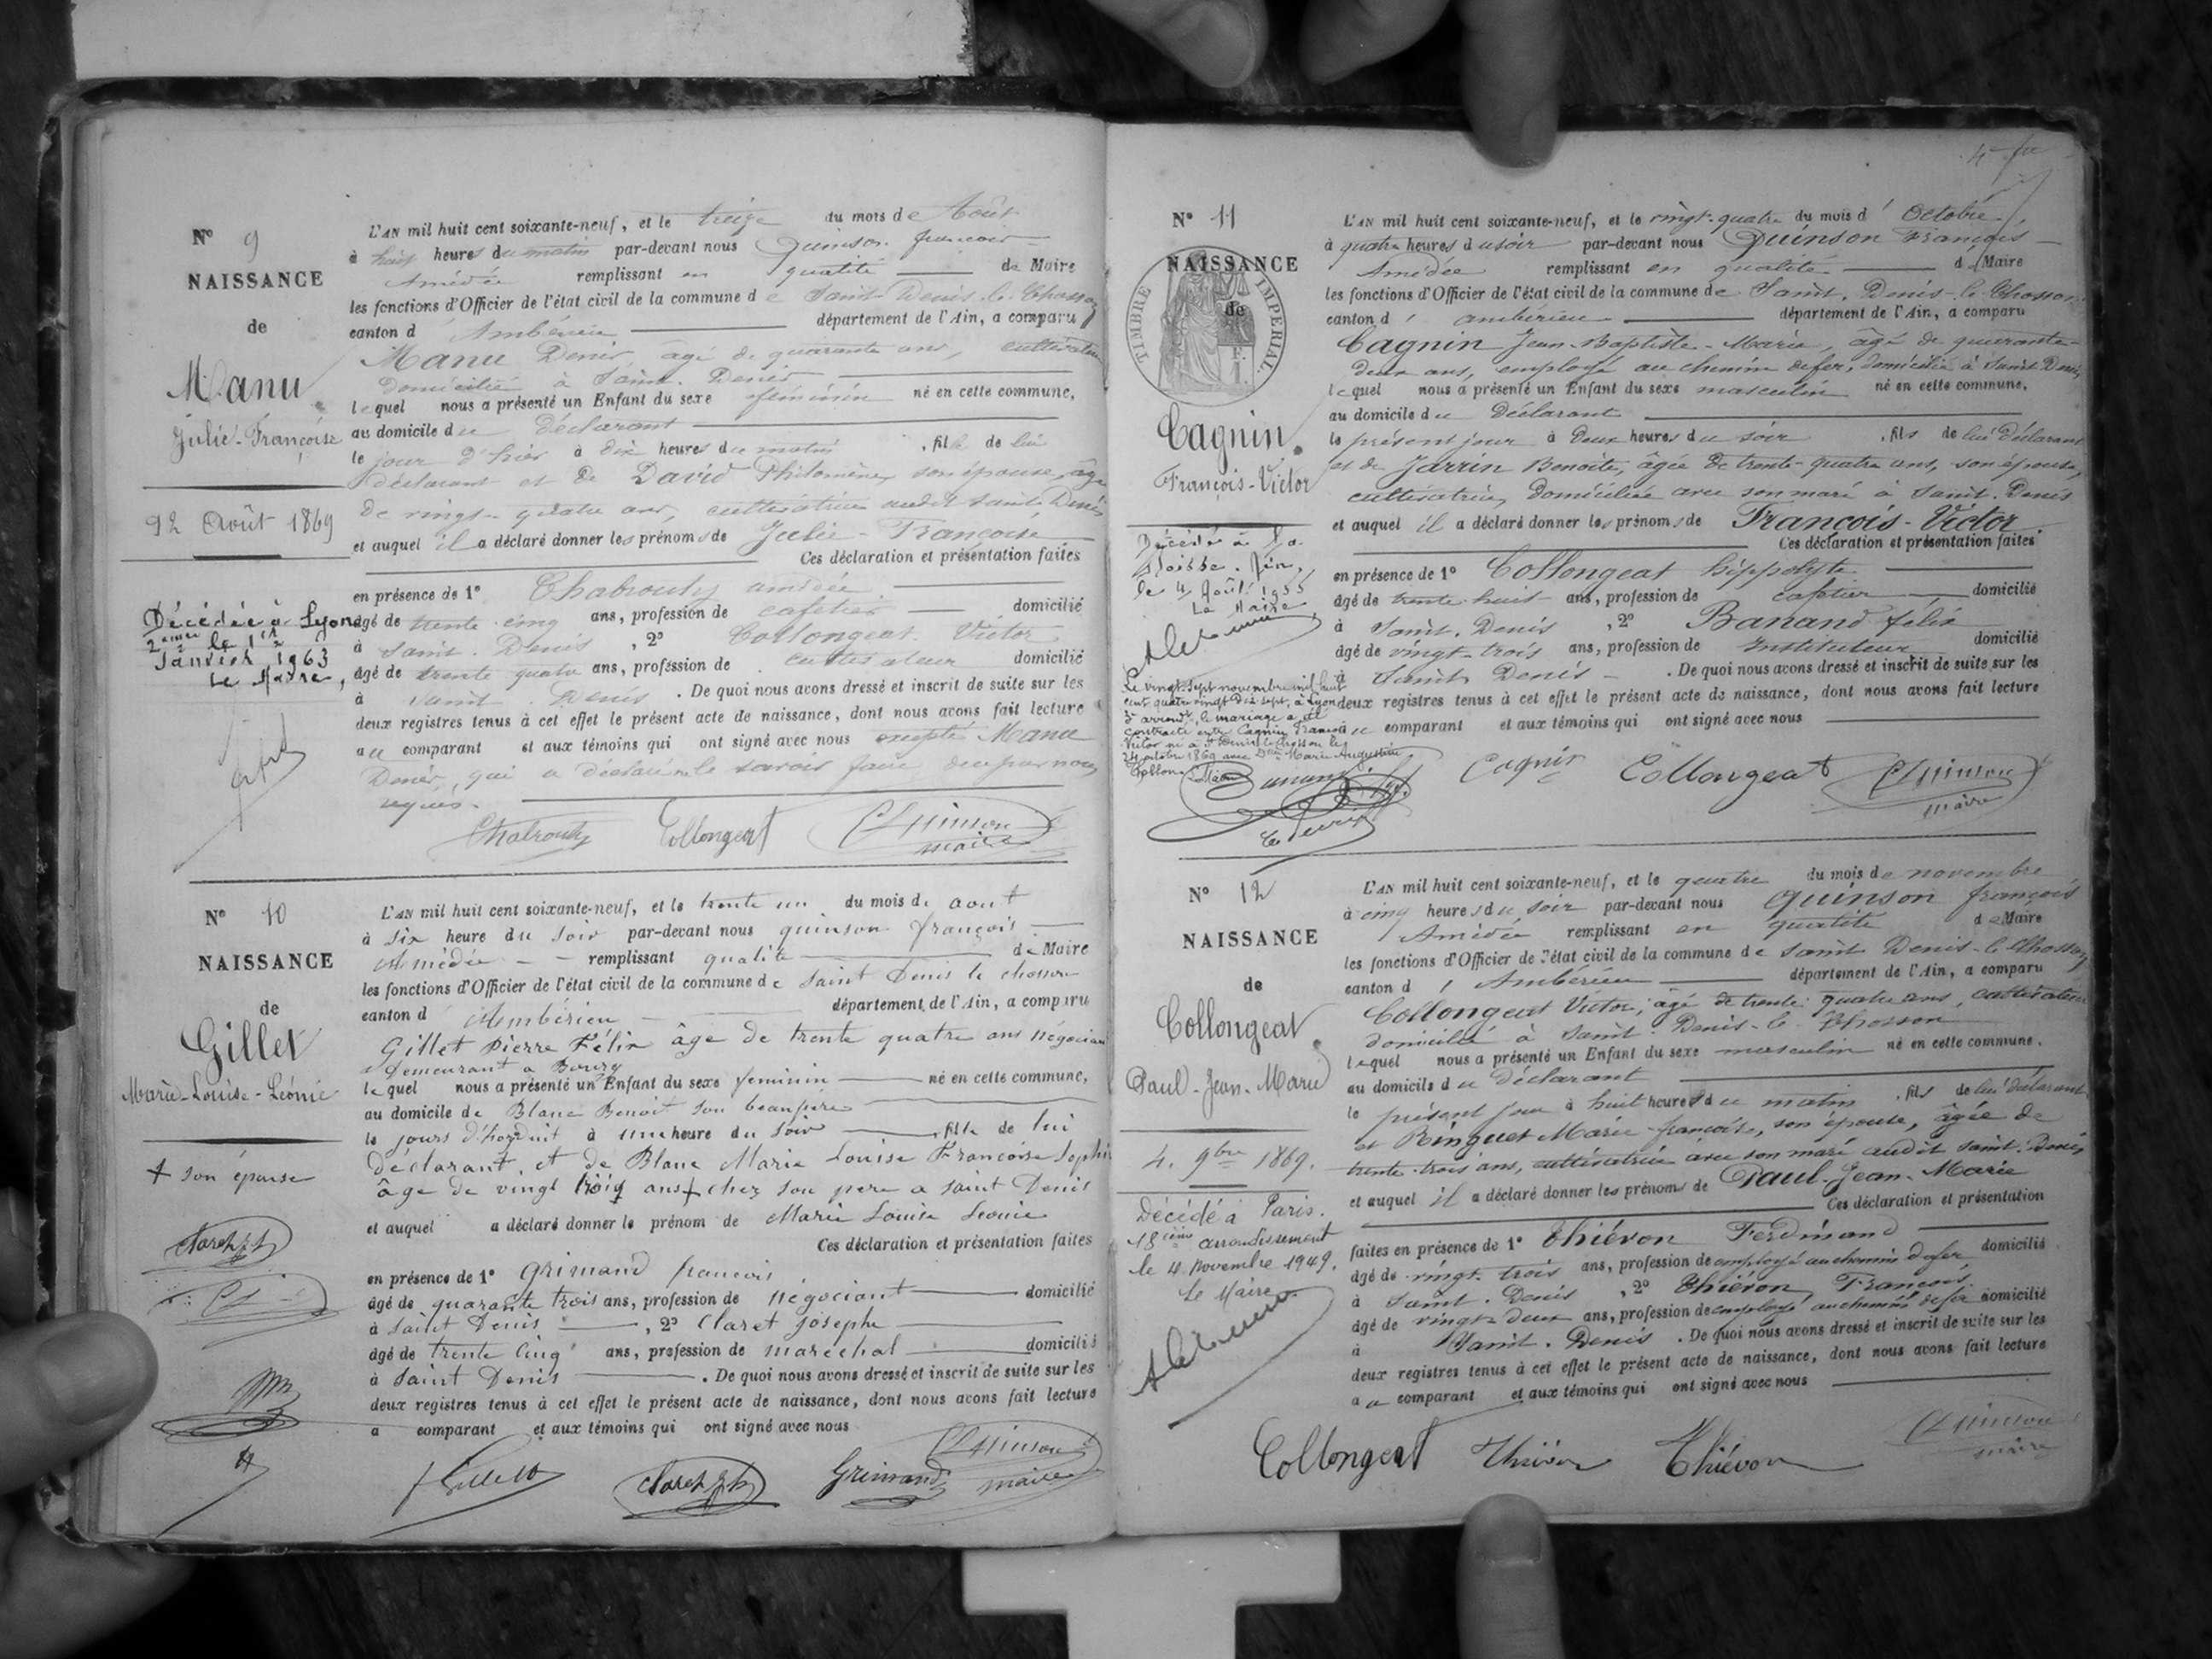 N° 9
NAISSANCE
de
Manu
Julie-Françoise
12 Août 1869
Décédée à Lyon
2eme le 1er
Janvier 1963
Le Maire,
L'AN mil huit cent soixante-neuf, et le treize du mois de Août
à huit heures du matin par-devant nous Quinson françois
Amédée remplissant en qualité de Maire
les fonctions d'Officier de l'état civil de la commune de Saint-Denis-le-Chosson
canton d' Ambérieu département de l'Ain, a comparu
Manu Denis, âgé de quarante ans, cultivateur
domicilié à Saint-Denis
lequel nous a présenté un Enfant du sexe féminin né en cette commune,
au domicile du Déclarant
le jour d'hier à dix heures du matin, fille de lui
déclarant et de David Philomène, son épouse, âgée
de vingt-quatre ans, cultivatrice audit Saint Denis
et auquel il a déclaré donner les prénoms de Julie-Françoise
Ces déclaration et présentation faites
en présence de 1° Chabouty amédée
âgé de trente-cinq ans, profession de cafetier domicilié
à Saint-Denis, 2° Collongeat Victor
âgé de trente quatre ans, profession de cultivateur domicilié
à Saint Denis. De quoi nous avons dressé et inscrit de suite sur les
deux registres tenus à cet effet le présent acte de naissance, dont nous avons fait lecture
au comparant et aux témoins qui ont signé avec nous excepté Manu
Denis, qui a déclaré ne le savoir faire de ce par nous
requis.
Collongeat Quinson
maire
N° 10
NAISSANCE
de
Gillet
Marie-Louise-Léonie
+ son épouse
Claret
L'AN mil huit cent soixante-neuf, et le trente un du mois de aout
à six heure du soir par-devant nous quinson françois
Amédée remplissant qualité de Maire
les fonctions d'Officier de l'état civil de la commune de Saint Denis le chosson
canton d' Ambérieu département de l'Ain, a comparu
Gillet Pierre Félix âge de trente quatre ans négociant
Demeurant a Bourg
lequel nous a présenté un Enfant du sexe feminin né en cette commune,
au domicile de Blanc Benoit son beaupere
le jours d'hojduit à une heure du soir, fille de lui
déclarant, et de Blanc Marie Louise Francoise Sophie
âge de vingt trois ans + chez son pere a saint Denis
et auquel a déclaré donner le prénom de Marie Louise Leonie
Ces déclaration et présentation faites
en présence de 1° Grimand francois
âgé de quarante trois ans, profession de négociant domicilié
à Saint Denis, 2° Claret josephe
âgé de trente cinq ans, profession de marechal domicilié
à Saint Denis. De quoi nous avons dressé et inscrit de suite sur les
deux registres tenus à cet effet le présent acte de naissance, dont nous avons fait lecture
a comparant et aux témoins qui ont signé avec nous
Gillet Claret Grimand Quinson
maire
N° 11
NAISSANCE
de
TIMBRE IMPERIAL
Cagnin
François-Victor
Décédé à La
Boisse, Ain,
le 4 Août 1955
Le Maire
Le vingt-sept novembre mil huit
cent quatre vingt dix sept, à Lyon
3e arrondt, le mariage a été
contracté entre Cagnin François
Victor né à St Denis le Chosson le
24 octobre 1869 avec Dlle Marie Augustine
L'AN mil huit cent soixante-neuf, et le vingt-quatre du mois d' Octobre
à quatre heures du soir par-devant nous Quinson François
Amédée remplissant en qualité de Maire
les fonctions d'Officier de l'état civil de la commune de Saint-Denis-le-Chosson
canton d' ambérieu département de l'Ain, a comparu
Cagnin Jean-Baptiste-Marie, âgé de quarante-
deux ans, employé au chemin de fer, domicilié à Saint Denis
lequel nous a présenté un Enfant du sexe masculin né en cette commune,
au domicile du Déclarant
le présent jour à deux heures du soir, fils de lui déclarant
et de Jarrin Benoite, âgée de trente-quatre ans, son épouse,
cultivatrice, domiciliée avec son mari à Saint-Denis
et auquel il a déclaré donner les prénoms de François-Victor
Ces déclaration et présentation faites
en présence de 1° Collongeat hippolyte
âgé de trente-huit ans, profession de cafetier domicilié
à Saint-Denis, 2° Banand félix
âgé de vingt-trois ans, profession de Instituteur domicilié
à Saint Denis. De quoi nous avons dressé et inscrit de suite sur les
deux registres tenus à cet effet le présent acte de naissance, dont nous avons fait lecture
au comparant et aux témoins qui ont signé avec nous
Banand Cagnin Collongeat Quinson
maire
N° 12
NAISSANCE
de
Collongeat
Paul-Jean-Marie
4. 9bre 1869.
Décédé à Paris.
18ème arrondissement
le 4 Novembre 1949.
Le Maire
L'AN mil huit cent soixante-neuf, et le quatre du mois de novembre
à cinq heures du soir par-devant nous Quinson françois
Amédée remplissant en qualité de Maire
les fonctions d'Officier de l'état civil de la commune de Saint Denis-le-Chosson
canton d' Ambérieu département de l'Ain, a comparu
Collongeat Victor, âgé de trente-quatre ans, cultivateur
domicilié à Saint-Denis-le-Chosson
lequel nous a présenté un Enfant du sexe masculin né en cette commune,
au domicile du Déclarant
le présent jour à huit heures du matin, fils de lui déclarant
et Ringuet Marie-françoise, son épouse, âgée de
trente-trois ans, cultivatrice avec son mari audit Saint-Denis
et auquel il a déclaré donner les prénoms de Paul-Jean-Marie
Ces déclaration et présentation
faites en présence de 1° Thiévon Ferdinand
âgé de vingt-trois ans, profession de employé au chemin de fer domicilié
à Saint-Denis, 2° Thiévon, François
âgé de vingt-deux ans, profession de employé au chemin de fer domicilié
à Saint-Denis. De quoi nous avons dressé et inscrit de suite sur les
deux registres tenus à cet effet le présent acte de naissance, dont nous avons fait lecture
au comparant et aux témoins qui ont signé avec nous
Collongeat Thiévon Thiévon Quinson
maire